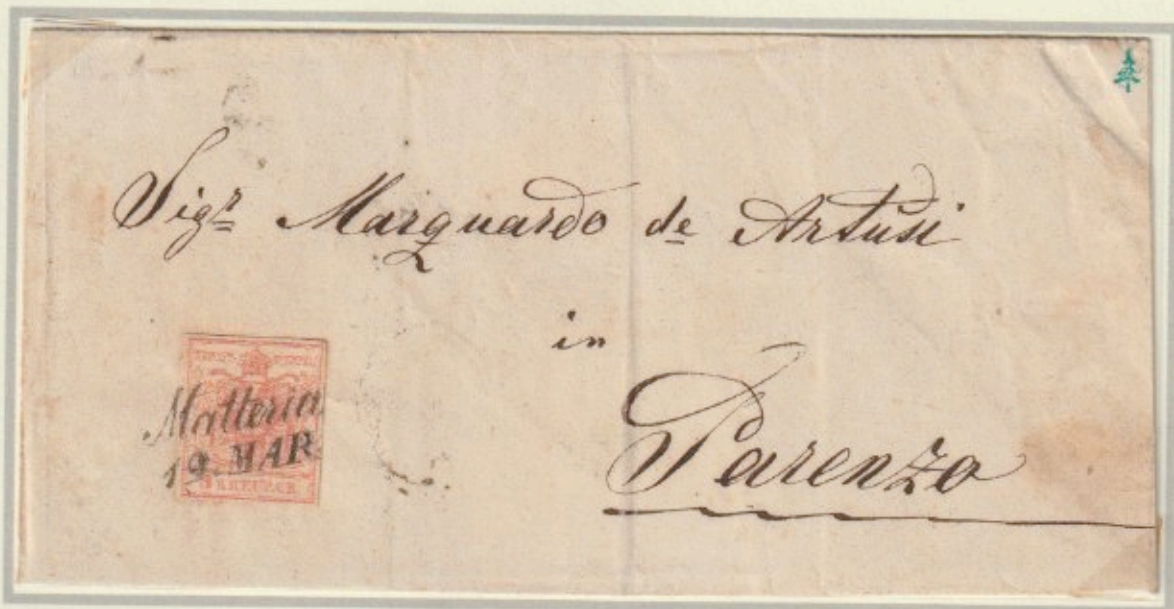 Sigr Marquardo de Artusi
in
Parenzo
Matteria
19. MAR
KREUZER